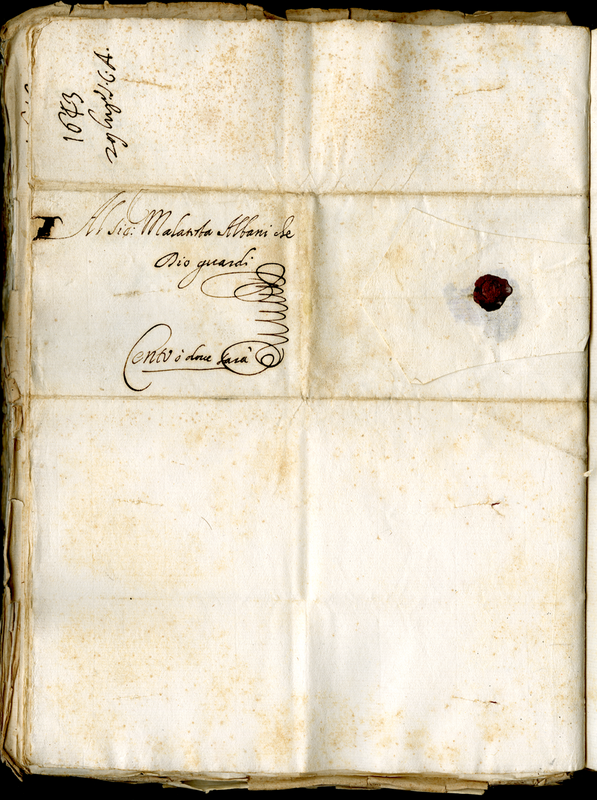 1643
29 lug.º C. A.
Al Sig: Malatesta Albani che
Dio guardi
Cento ò doue sarà